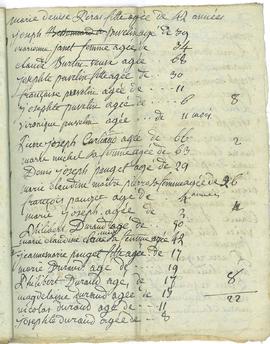 marie denise Peras fille agée de 22 années
joseph pusselin agé de 39
marianne janet femme agée de 34
claude Burlin veuve agée 68
josephte pusselin agée de .. 30
françoise pusselin agée de ... 11
josephte pusselin agée de ... 6 8
veronique pusselin agée ... de 11 mois
Pierre joseph agé de 66 2
marie michel sa femme agée de 63
Denis joseph pouget agé de 29
marie claudine sa femme agée de 26
françois pouget agé de 4 années 4
marie joseph agée de 2
Philibert Durand agé de 50
marie claudine femme agée 42
jeannemarie pouget fille agée de 17
marie Durand agée de 19
Philibert Durand agé de 17 8
magdelaine Durand agée de 13 22
nicolas durand agé de ... 11
josephte durand agée de ... 8